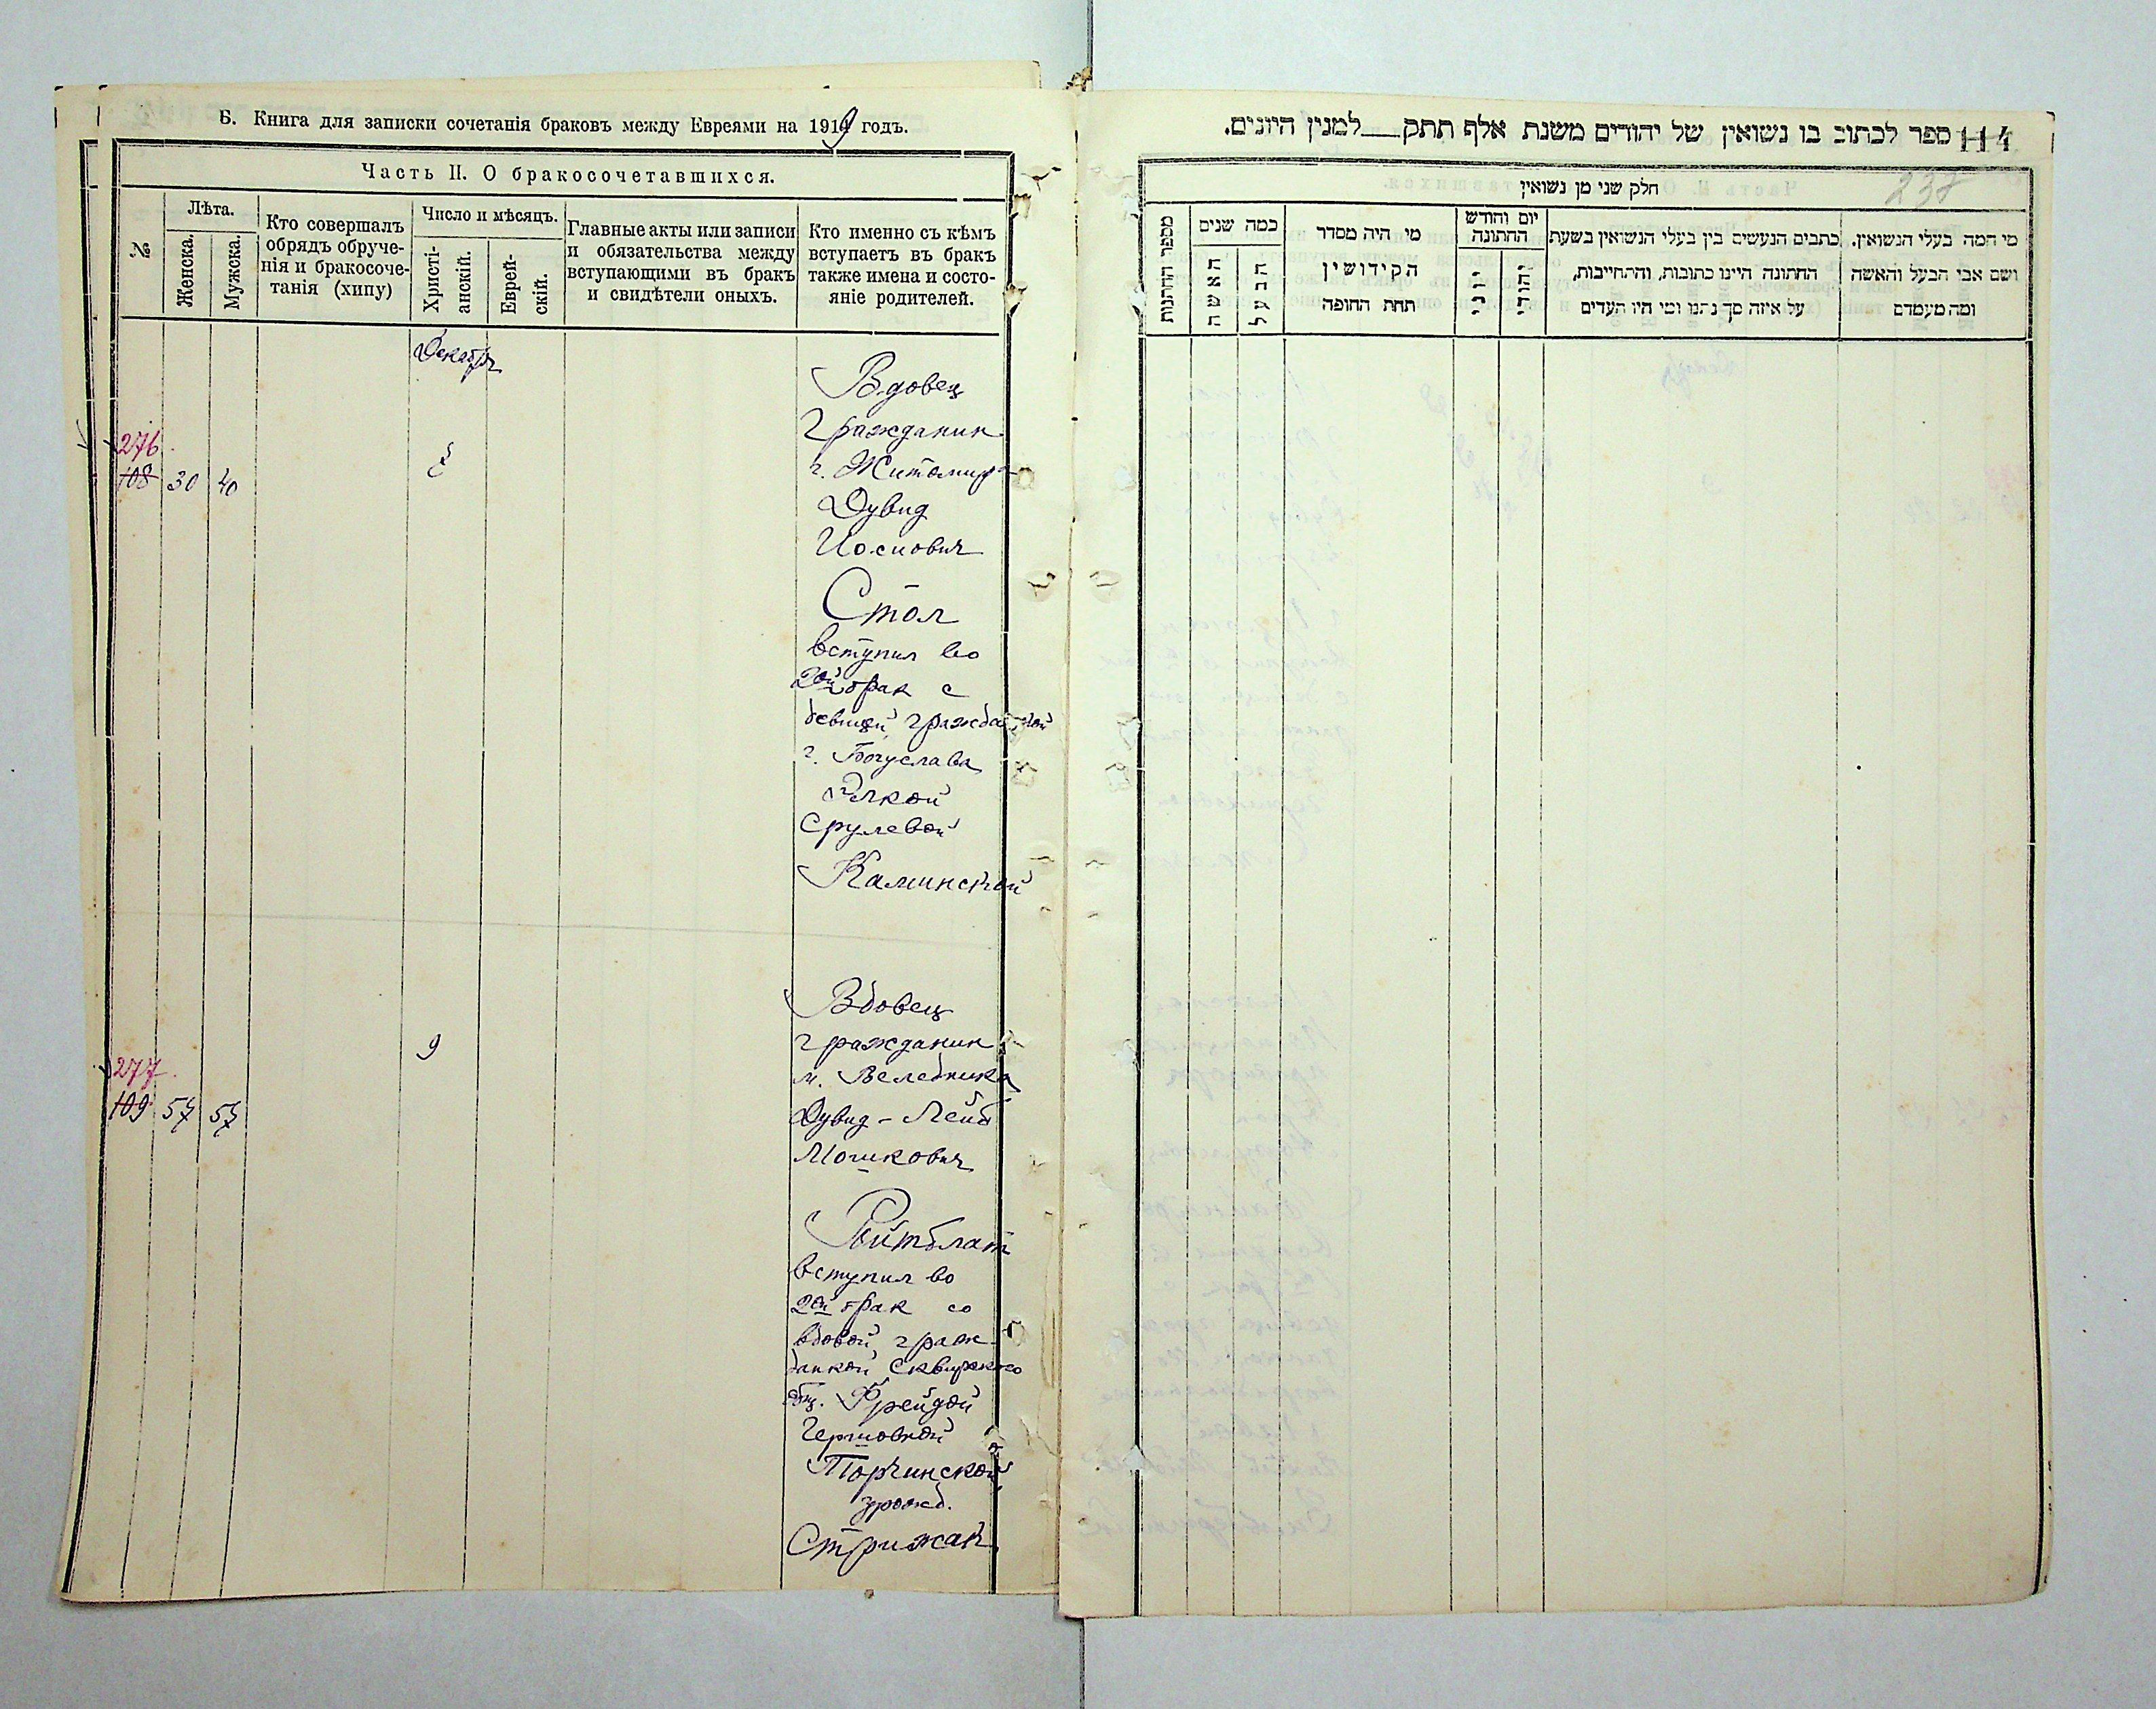 Б. Книга для записки сочетанія браковъ между Евреями на 1919 годъ.
Часть II. О бракосочетавшихся.
№
Лѣта.
Женска.
Мужска.
Кто совершалъ
обрядъ обруче-
нія и бракосоче-
танія (хипу)
Число и мѣсяцъ.
Христі-
анскій.
Еврей-
скій.
Главные акты или записи
и обязательства между
вступающими въ бракъ
и свидѣтели оныхъ.
Кто именно съ кѣмъ
вступаетъ въ бракъ
также имена и состо-
яніе родителей.
Декабрь
276.
108 30 40
Вдовец
Гражданин
г. Житомира
Дувид
Иосиович
Стол
вступил во
2ой брак с
девицей, гражданкой
г. Богуслава
Элкой
Срулевой
Каминской
277.
109 57 57
9
Вдовец
гражданин
м. Веледника
Дувид-Лейб
Мошкович
Ройтблат
вступил во
2ой брак со
вдовой, граж-
данкой Сквирского
общ. Фрейдой
Гершовной
Торчинской
урожд.
Стрижак
114 ספר לכתוב בו נשואין של יהודים משנת אלף תתק___למנין היונים.
237
חלק שני מן נשואין
מספר החתונות
כמה שנים
האשה
הבעל
מי היה מסדר
הקידושין
תחת החופה
יום וחודש
החתונה
יוני
יהודי
כתבים הנעשים בין בעלי הנשואין בשעת
החתונה היינו כתובות, והתחייבות,
על איזה סך נתנו ומי היו העדים
מי המה בעלי הנשואין.
ושם אבי הבעל והאשה
ומה מעמדם